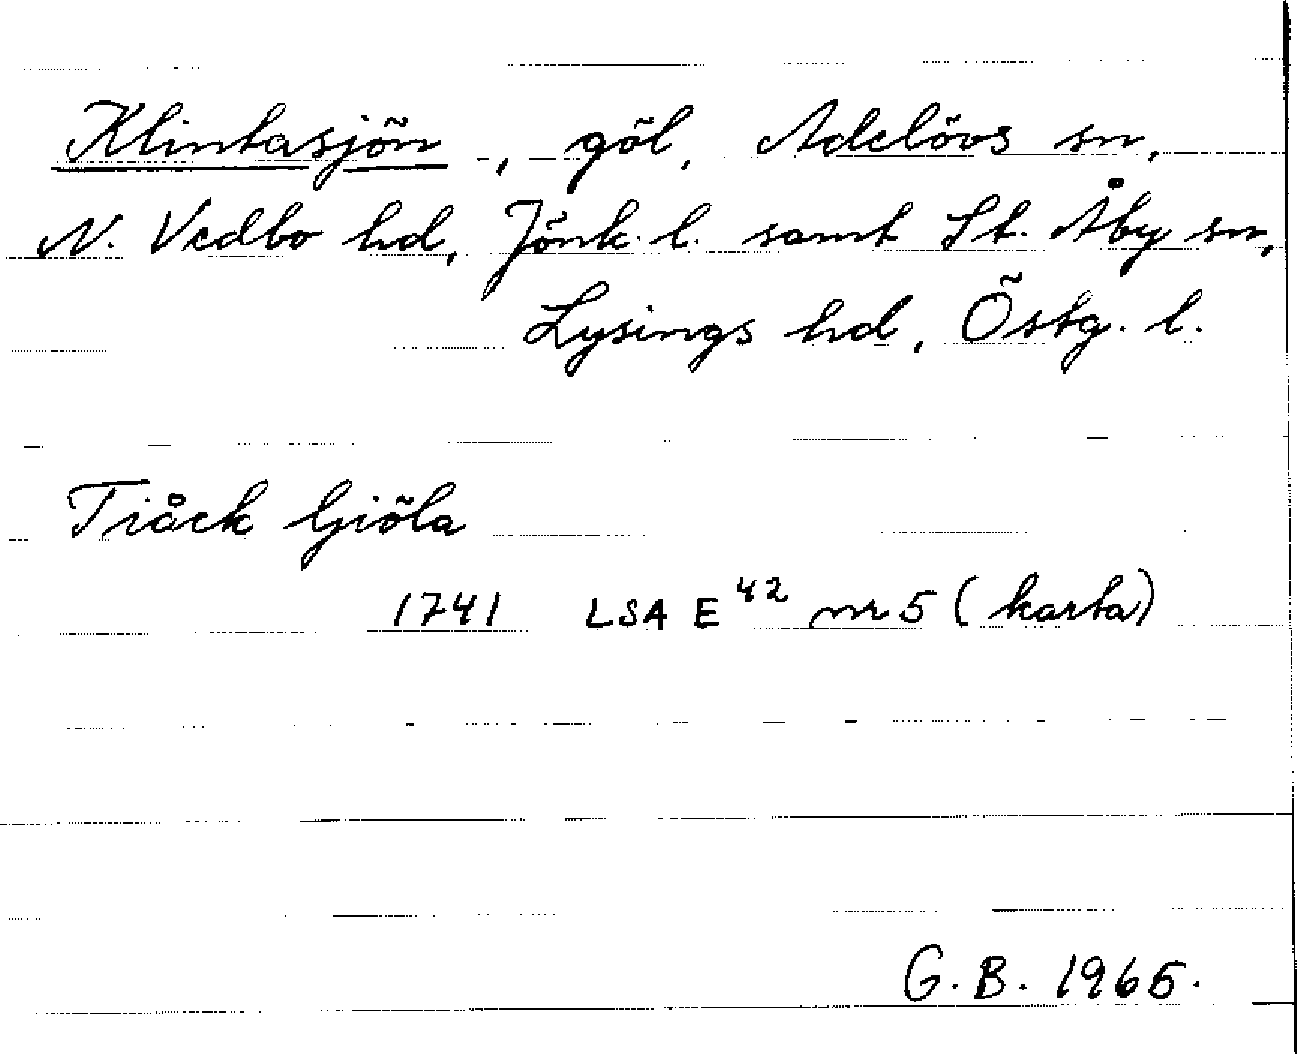 Klintasjön, göl, Adelövs sn,
N. Vedbo hd, Jönk. l. samt St. Åby sn,
Lysings hd, Östg. l.
Tiåck Giöla
1741 LSA E 42 nr 5 (karta)
G.B. 1965.